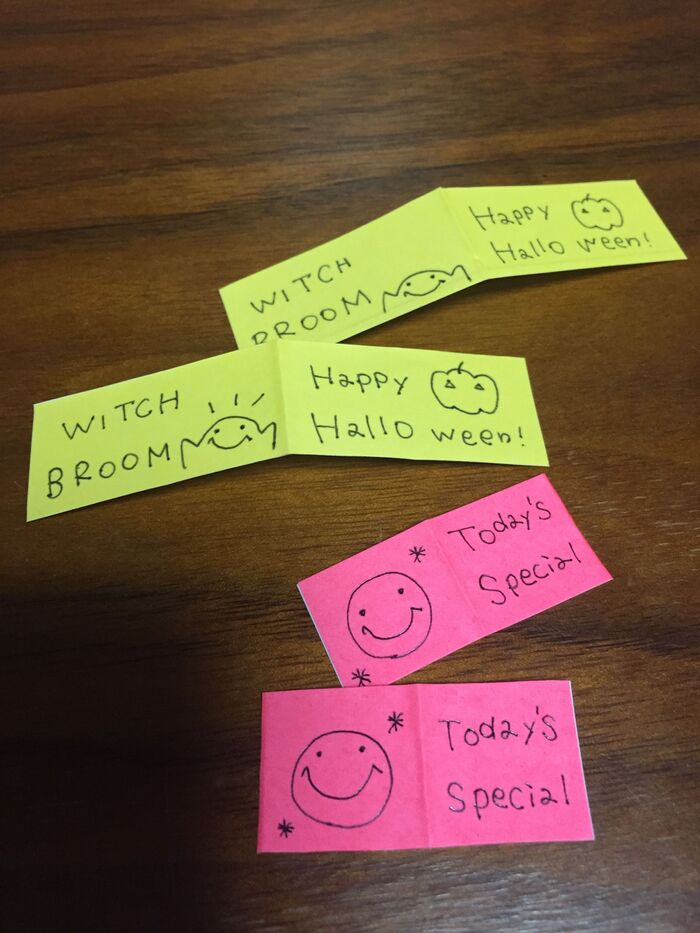 WITCH
BROOM
Happy
Hallo ween!
WITCH
BROOM
Happy
Hallo ween!
Today's
Special
Today's
Special